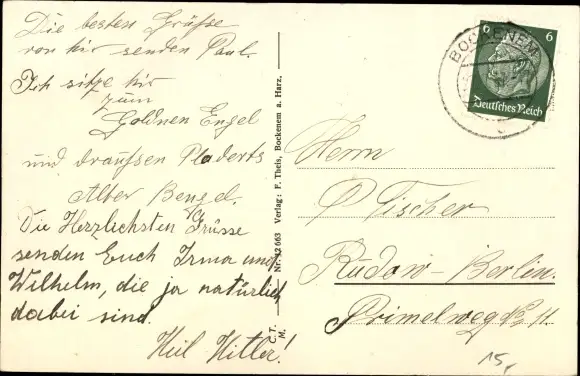 Die besten Grüsse
von hir senden Paul.
Ich sitze hir
zum
Goldnen Engel
und draussen Pladerts
Alter Bengel.
Die Herzlichsten Grüsse
senden Euch Irma und
Wilhelm, die ja natürlich
dabei sind.
Heil Hitler!
C.T.M. Nr. 12663 Verlag: F. Theis, Bockenem a. Harz,
BOCKENEM
6 6
Deutsches Reich
Herrn
P Tischer
Rudow-Berlin.
Primelweg No. 11.
15,